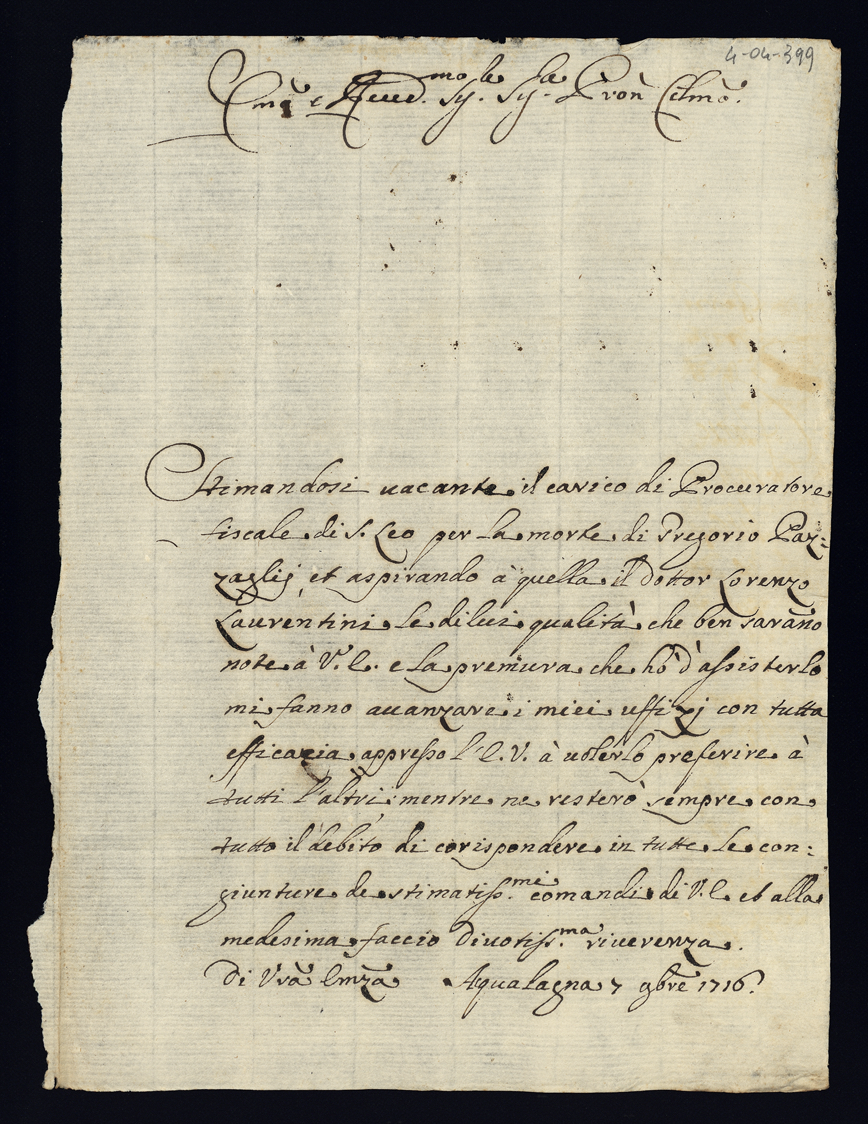 4-04-399
Emo e Reud.mo Sig.re Sig.re Prōn Colmo.
Stimandosi uacante il carico di Procuratore
fiscale di S. Leo per la morte di Gregorio Paz=
zaglij et aspirando à quella il dottor Lorenzo
Laurentini le di lui qualità che ben sarāno
note à V. E. e la premura che hò d'assisterlo
mi fanno auanzare i miei uffizj con tutta
efficacia appresso l'E. V. à uolerlo preferire à
tutti l'altri mentre ne resterò sempre con
tutto il debito di corispondere in tutte le con=
giunture de stimatiss.mi comandi di V. E. et alla
medesima faccio diuotiss.ma riuerenza.
Di Vrā Emzā Aqualagna 7 gbre 1716.